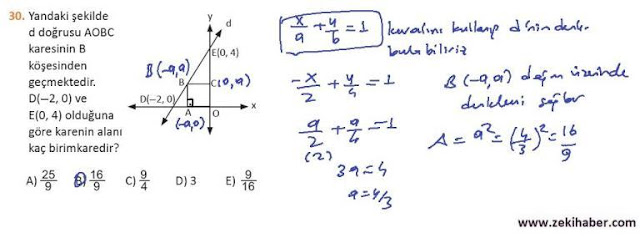 30. Yandaki şekilde
d doğrusu AOBC
karesinin B
köşesinden
geçmektedir.
D(−2, 0) ve
E(0, 4) olduğuna
göre karenin alanı
kaç birimkaredir?
y
d
E(0, 4)
B(-a,a)
B
C(0,a)
D(−2, 0)
A
O
x
(-a,0)
A) 25/9 B) 16/9 C) 9/4 D) 3 E) 9/16
x/a + y/b = 1 kuralını kullanıp d'nin denk.
bulabiliriz
-x/2 + y/4 = 1
B(-a,a) doğru üzerinde
denklemi sağlar
a/2 + a/4 = 1
(2)
A = a² = (4/3)² = 16/9
3a = 4
a = 4/3
www.zekihaber.com